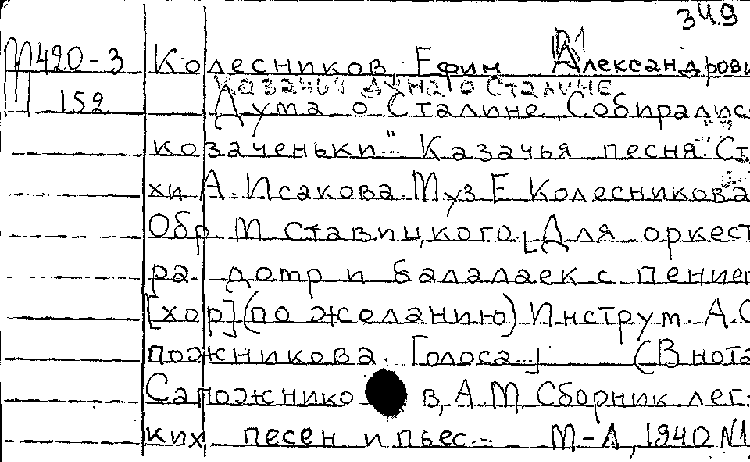 349
М420-3 Колесников Ефим Александрови
Казачья дума о Сталине
152 Дума о Сталине. Собиралис
козаченьки" Казачья песня. Ст
хи А. Исакова. Муз Е. Колесникова
Обр М Ставицкого. [Для оркест
ра домр и балалаек с пением
[хор] (по желанию) Инструм. А. С
пожникова. Голоса.] (В нота
Сапожников, А. М Сборник лег-
ких песен и пьес.- М-Л, 1940 N1